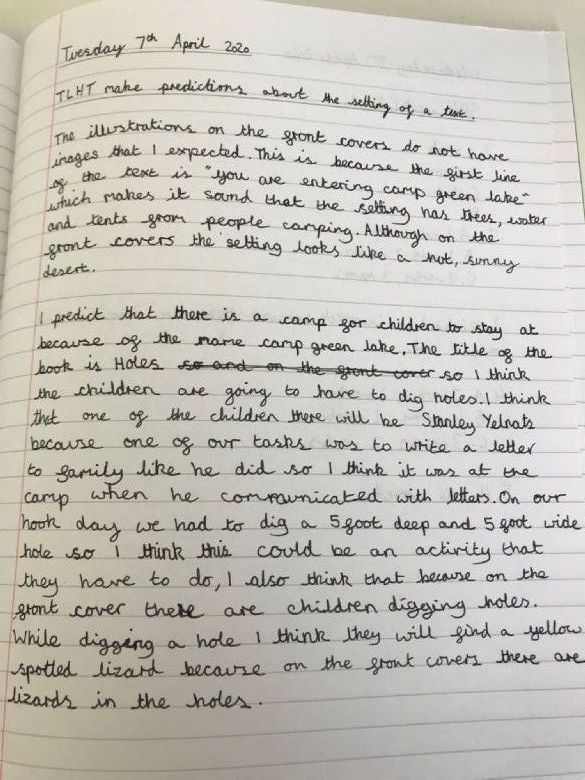 Tuesday 7th April 2020
TLHT make predictions about the setting of a text.
The illustrations on the front covers do not have
images that I expected. This is because the first line
of the text is "you are entering camp green lake"
which makes it sound that the setting has trees, water
and tents from people camping. Although on the
front covers the setting looks like a hot, sunny
desert.
I predict that there is a camp for children to stay at
because of the name camp green lake. The title of the
book is Holes so and on the front cover so I think
the children are going to have to dig holes. I think
that one of the children there will be Stanley Yelnats
because one of our tasks was to write a letter
to family like he did so I think it was at the
camp when he communicated with letters. On our
hook day we had to dig a 5 foot deep and 5 foot wide
hole so I think this could be an activity that
they have to do, I also think that because on the
front cover there are children digging holes.
While digging a hole I think they will find a yellow
spotted lizard because on the front covers there are
lizards in the holes.